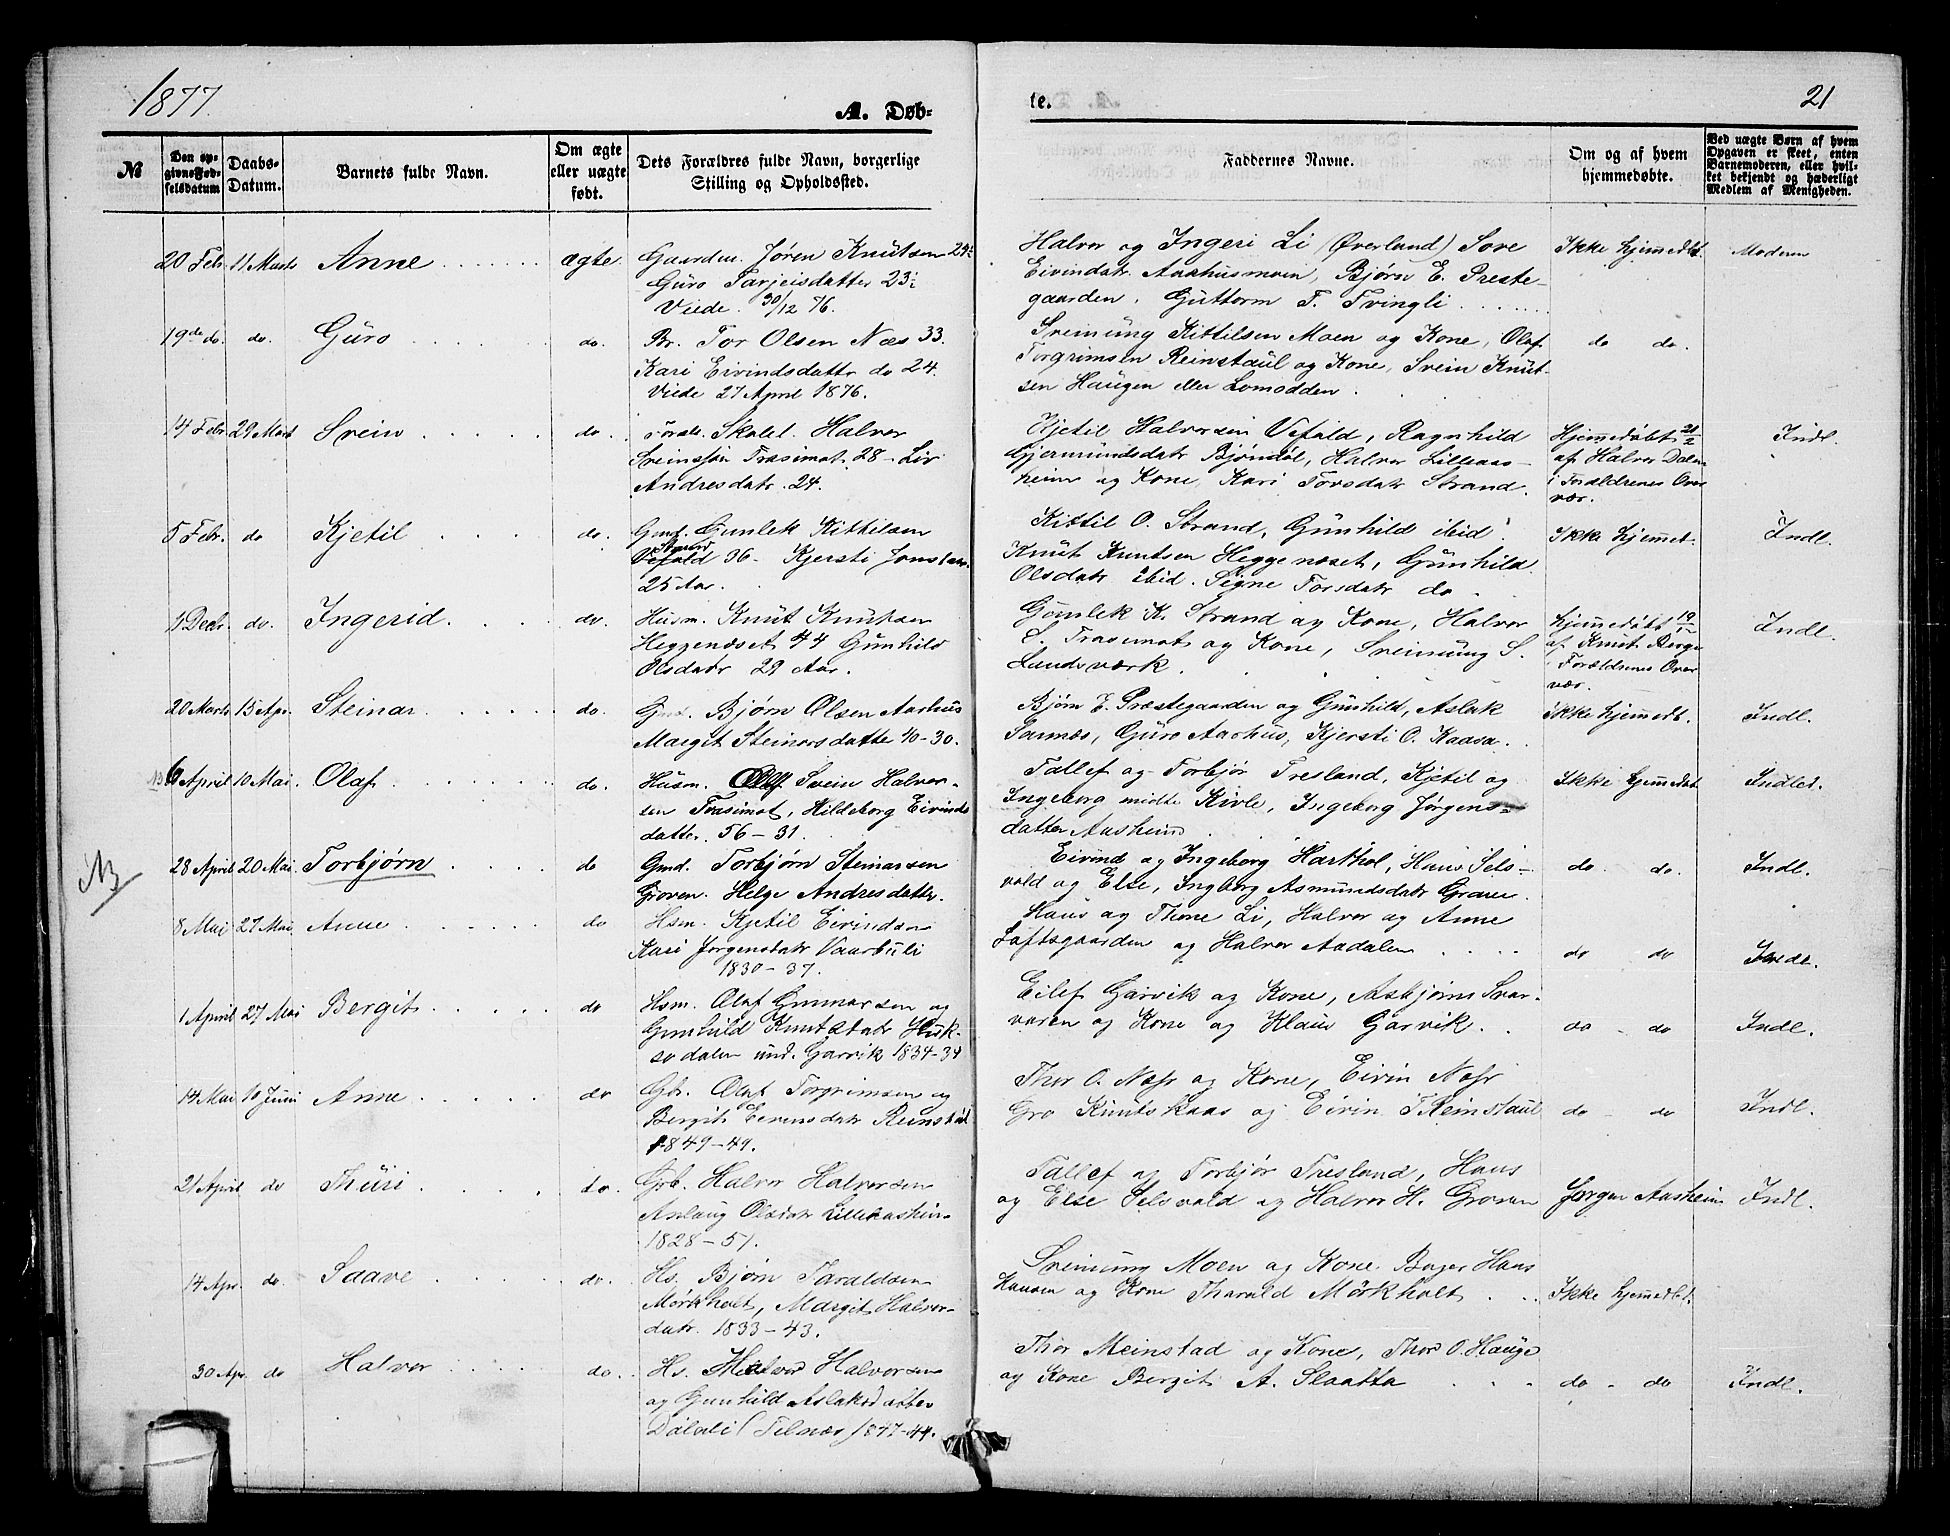 1877.
A. Døb-
te.
21
№
Den op-
givne Fød-
selsdatum
Daabs-
Datum.
Barnets fulde Navn.
Om ægte
eller uægte
født.
Dets Forældres fulde Navn, borgerlige
Stilling og Opholdssted.
Faddernes Navne.
Om og af hvem
hjemmedøbte.
Ved uægte Børn af hvem
Opgaven er skeet, enten
Barnemoderen, eller hvil-
ket bekjendt og hæderligt
Medlem af Menigheden.
20 Febr. 11 Marts Anne ægte. Gaardm. Jøren Knutsen 24
Guro Tarjeisdatter 23
Viede 30/12 76.
Halvor og Ingeri Li (Øverland) Sove
Eivindsdtr. Aashusmoen, Bjørn E. Preste-
gaarden. Guttorm T. Tvingli
Ikke hjemmedbt.
Moderen
19de do. do. Guro do. Br. Tor Olsen Næs 33.
Kari Eivindsdattr do 24.
Viede 27 April 1876.
Sveinung Kittilsen Moen og Kone, Olaf
Torgrimsen Reinstaul og Kone, Svein Knut-
sen Haugen eller Lomodden.
do do.
14 Febr. 29 Marts Svein do. Skolel. Halvor
Sveinssen Trasimot 28 - Liv
Andresdatr. 24.
Kjetil Halvorsen Vefald, Ragnhild
Gjermundsdatr Bjøndøl, Halvor Lilleaas-
heim og Kone, Kari Torsdatr Strand.
Hjemmedøbt 21/2
af Halvor Dalen
i Forældrenes Over
vær.
Indl.
5 Febr. do Kjetil do. Gmd. Gunlek Kittilsen
Vefald 36 - Kjersti Jonsdatr.
25 Aar.
Kittil O. Strand, Gunhild ibid.
Knut Knutsen Heggenæset, Gunhild
Olsdatr ibid. Signe Torsdatr do
Ikke hjemmet.
Indl.
9 Decbr. do. Ingerid. do. Husm. Knut Knutsen
Heggenæset 44 Gunhild
Olsdatr 29 Aar.
Gunlek K. Strand og Kone, Halvor
S. Trasimot og Kone, Sveinung S.
Landsværk.
Hjemmedøbt 19/12
af Knut Berge
i Forældrenes Over
vær.
Indl.
20 Marts 15 Apr. Steinar. do. Gmd. Bjørn Olsen Aarhus
Margit Steinarsdatter 40-30.
Bjørn E. Præstegaarden og Gunhild, Aslak
Sannæs, Guro Aarhus, Kjersti O. Kaasa.
Ikke hjemmedt.
Indl.
6 April 10 Mai. Olaf do. Husm. Svein Halvor-
sen Trasimot, Hildeborg Eivinds
datter. 56-31.
Tallef og Torbjør Tresland, Kjetil og
Ingeborg midte Kivle, Ingeborg Jørgens-
datter Aasheim
Ikke hjemmedbt.
Indled.
NB
28 April 20 Mai. Torbjørn do Gmd. Torbjørn Steinarsen
Groven. Helge Andresdatter.
Eivind og Ingeborg Harthol, Hans Sels-
vold og Else, Ingborg Asmundsdatr Graver.
do. do.
Indl.
8 Mai 27 Mai. Anne do Hsm. Kjetil Eivindsen
Kari Jørgensdatr Vaarbuli
1830-37.
Hans og Thone Li, Halvor og Anne
Loftsgaarden og Halvor Aadalen
do do
Indl.
1 April 27 Mai Bergit do Hsm. Olaf Gunnarsen og
Gunhuld Knutsdatr Huk-
sodalen und. Garvik 1834-34
Eilef Garvik og Kone, Asbjørn Svar-
varen og Kone og Klaus Garvik.
do do
Indl.
14 Mai 10 Juni Anne do Gbr. Olaf Torgrimsen og
Bergit Eivensdatr Reinstaul
1849-49.
Thor O. Næsr og Kone, Eivin Næsr
Gro Knuts Kaas og Eivin T Reinstaul
do - do
Indl.
21 April do Thuri do. Grb. Halvor Halvorsen
Anlaug Olsdatr Lilleaasheim
1828-51.
Tallef og Torbjør Tresland, Hans
og Else Selsvold og Halvor H. Groven
Jørgen Aasheim
Indl.
14 Apr. do. Saave do. Hs. Bjørn Taraldsen
Mørkholt, Margit Halvors-
datr. 1833-43.
Sveinung Moen og Kone. Bager Hans
Hansen og Kone Tharald Mörkholt
Ikke hjemmedbt.
30 Apr. do Halvor do. Hs. Halvor Halvorsen
og Gunhild Aslaksdatter
Dalali (Tilnæs) 1847-44.
Thor Meinstad og Kone, Thor O. Hauge
og Kone Bergit A. Slaatta
do - do
Indl.